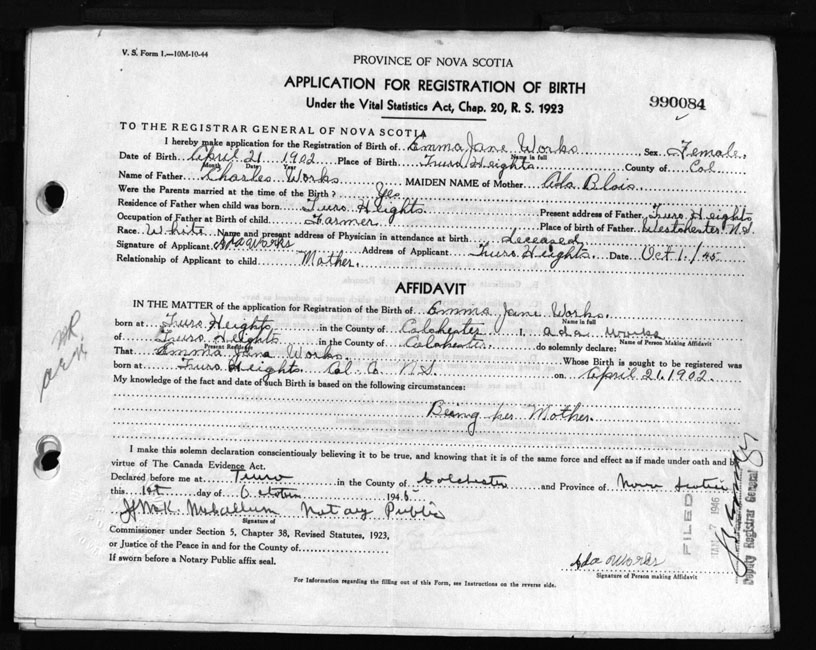 V. S. Form 1.—10M-10-44
PROVINCE OF NOVA SCOTIA
APPLICATION FOR REGISTRATION OF BIRTH
Under the Vital Statistics Act, Chap. 20, R. S. 1923
990084
TO THE REGISTRAR GENERAL OF NOVA SCOTIA
I hereby make application for the Registration of Birth of Emma Jane Works Sex Female.
Name in full
Date of Birth April 21 1902 Place of Birth Truro Heights County of Col
Month Day Year
Name of Father Charles Works MAIDEN NAME of Mother Ada Blois
Were the Parents married at the time of the Birth? Yes
Residence of Father when child was born Truro Heights Present address of Father Truro Heights
Occupation of Father at Birth of child Farmer Place of birth of Father Westchester N.S.
Race White Name and present address of Physician in attendance at birth deceased
Signature of Applicant Ada Works Address of Applicant Truro Heights. Date Oct 1/45
Relationship of Applicant to child Mother.
AFFIDAVIT
IN THE MATTER of the application for Registration of the Birth of Emma Jane Works.
Name in full
born at Truro Heights in the County of Colchester I, Ada Works
Name of Person Making Affidavit
of Truro Heights in the County of Colchester do solemnly declare:
Present Residence
That Emma Jane Works. Whose Birth is sought to be registered was
born at Truro Heights Col. Co. N.S. on April 21.1902.
My knowledge of the fact and date of such Birth is based on the following circumstances:
Being her Mother.
I make this solemn declaration conscientiously believing it to be true, and knowing that it is of the same force and effect as if made under oath and by
virtue of The Canada Evidence Act.
Declared before me at Truro in the County of Colchester and Province of Nova Scotia
this 1st day of October 1945
McCallum Notary Public
Signature of
Commissioner under Section 5, Chapter 38, Revised Statutes, 1923,
or Justice of the Peace in and for the County of
If sworn before a Notary Public affix seal.
Ada Works
Signature of Person making Affidavit
For Information regarding the filling out of this Form, see Instructions on the reverse side.
FILED
7 1946
Deputy Registrar General